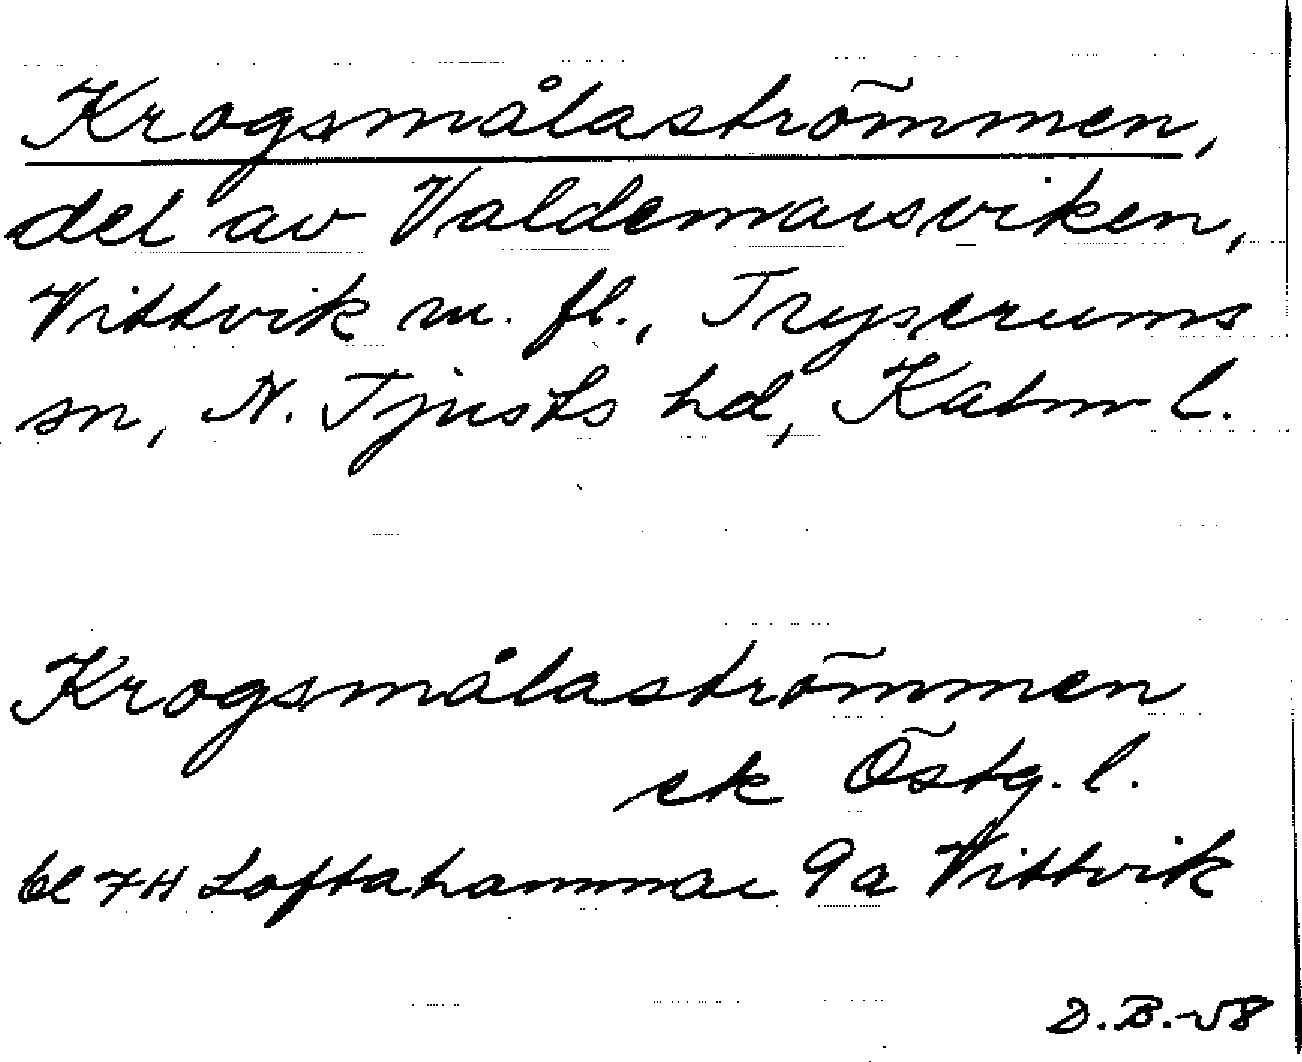 Krogsmålaströmmen,
del av Valdemarsviken,
Vittvik m. fl., Tryserums
sn, N. Tjusts hd, Kalm l.
Krogsmålaströmmen
ek Östg. l.
bl 7H Loftahammar 9a Vittvik
D.B.-58